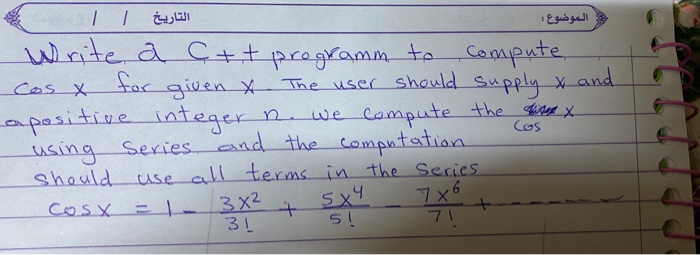 الموضوع: التاريخ / /
Write a C++ programm to compute
cos x for given x. The user should supply x and
a positive integer n. we compute the cos x
using series and the computation
should use all terms in the series
cosx = 1 - 3x²/3! + 5x⁴/5! - 7x⁶/7! + - - - - - -